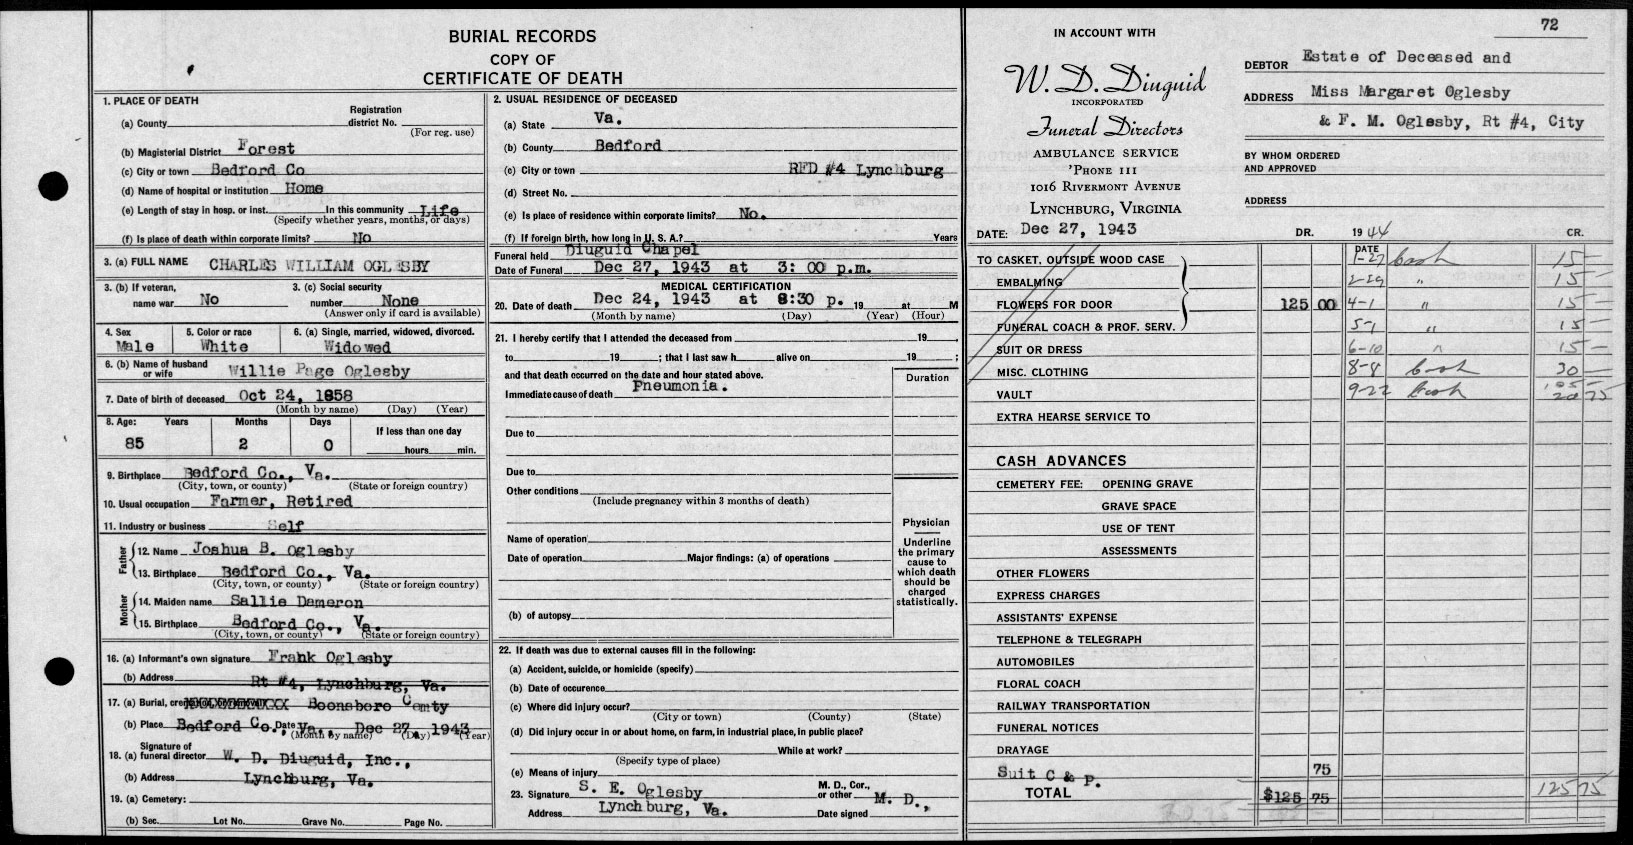 BURIAL RECORDS
COPY OF
CERTIFICATE OF DEATH
1. PLACE OF DEATH
(a) County
Registration district No.
(For reg. use)
(b) Magisterial District Forest
(c) City or town Bedford Co
(d) Name of hospital or institution Home
(e) Length of stay in hosp. or inst. In this community Life
(Specify whether years, months, or days)
(f) Is place of death within corporate limits? No
3. (a) FULL NAME CHARLES WILLIAM OGLESBY
3. (b) If veteran, name war No
3. (c) Social security number None
(Answer only if card is available)
4. Sex Male
5. Color or race White
6. (a) Single, married, widowed, divorced. Widowed
6. (b) Name of husband or wife Willie Page Oglesby
7. Date of birth of deceased Oct 24, 1858
(Month by name) (Day) (Year)
8. Age: Years Months Days If less than one day
85 2 0 hours min.
9. Birthplace Bedford Co., Va.
(City, town, or county) (State or foreign country)
10. Usual occupation Farmer, Retired
11. Industry or business Self
Father
12. Name Joshua B. Oglesby
13. Birthplace Bedford Co., Va.
(City, town, or county) (State or foreign country)
Mother
14. Maiden name Sallie Dameron
15. Birthplace Bedford Co., Va.
(City, town, or county) (State or foreign country)
16. (a) Informant's own signature Frank Oglesby
(b) Address Rt #4, Lynchburg, Va.
17. (a) Burial, Boonsboro Cemty
(b) Place Bedford Co., Va., Date Dec 27, 1943
(Month by name) (Day) (Year)
18. (a) Signature of funeral director W. D. Diuguid, Inc.,
(b) Address Lynchburg, Va.
19. (a) Cemetery:
(b) Sec. Lot No. Grave No. Page No.
2. USUAL RESIDENCE OF DECEASED
(a) State Va.
(b) County Bedford
(c) City or town RFD #4 Lynchburg
(d) Street No.
(e) Is place of residence within corporate limits? No.
(f) If foreign birth, how long in U. S. A.? Years
Funeral held Diuguid Chapel
Date of Funeral Dec 27, 1943 at 3:00 p.m.
MEDICAL CERTIFICATION
20. Date of death Dec 24, 1943 at 8:30 p. 19 at M
(Month by name) (Day) (Year) (Hour)
21. I hereby certify that I attended the deceased from 19 ,
to 19 ; that I last saw h alive on 19 ;
and that death occurred on the date and hour stated above.
Duration
Immediate cause of death Pneumonia.
Due to
Due to
Other conditions
(Include pregnancy within 3 months of death)
Name of operation
Date of operation Major findings: (a) of operations
(b) of autopsy
Physician
Underline the primary cause to which death should be charged statistically.
22. If death was due to external causes fill in the following:
(a) Accident, suicide, or homicide (specify)
(b) Date of occurence
(c) Where did injury occur?
(City or town) (County) (State)
(d) Did injury occur in or about home, on farm, in industrial place, in public place?
While at work?
(Specify type of place)
(e) Means of injury
23. Signature S. E. Oglesby M. D., Cor., or other M. D.,
Address Lynchburg, Va. Date signed
72
IN ACCOUNT WITH
W. D. Diuguid
INCORPORATED
Funeral Directors
AMBULANCE SERVICE
'PHONE 111
1016 RIVERMONT AVENUE
LYNCHBURG, VIRGINIA
DEBTOR Estate of Deceased and
ADDRESS Miss Margaret Oglesby
& F. M. Oglesby, Rt #4, City
BY WHOM ORDERED AND APPROVED
ADDRESS
DATE: Dec 27, 1943 DR. 1944 CR.
DATE
TO CASKET, OUTSIDE WOOD CASE 1-27 Cash 15 —
EMBALMING 2-29 " 15 —
FLOWERS FOR DOOR 125 00 4-1 " 15 —
FUNERAL COACH & PROF. SERV. 5-1 " 15 —
SUIT OR DRESS 6-10 " 15 —
MISC. CLOTHING 8-8 Cash 30 —
VAULT 9-22 Cash 20 75
105
EXTRA HEARSE SERVICE TO
CASH ADVANCES
CEMETERY FEE: OPENING GRAVE
GRAVE SPACE
USE OF TENT
ASSESSMENTS
OTHER FLOWERS
EXPRESS CHARGES
ASSISTANTS' EXPENSE
TELEPHONE & TELEGRAPH
AUTOMOBILES
FLORAL COACH
RAILWAY TRANSPORTATION
FUNERAL NOTICES
DRAYAGE
Suit C & P. 75
TOTAL $125 75 125 75